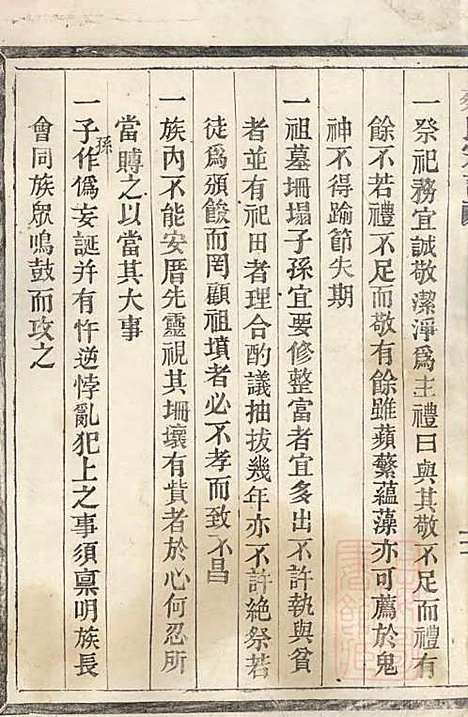 一祭祀務宜誠敬潔淨爲主禮曰與其敬不足而禮有
餘不若禮不足而敬有餘雖蘋蘩蘊藻亦可薦於鬼
神不得踰節失期
一祖墓坍塌子孫宜要修整富者宜多出不許執與貧
者並有祀田者理合酌議抽拔幾年亦不許絶祭若
徒爲頒餕而罔顧祖墳者必不孝而致不昌
一族内不能安厝先靈視其坍壞有貲者於心何忍所
當賻之以當其大事
一子孫作僞妄誕幷有忤逆悖亂犯上之事須稟明族長
會同族眾鳴鼓而攻之